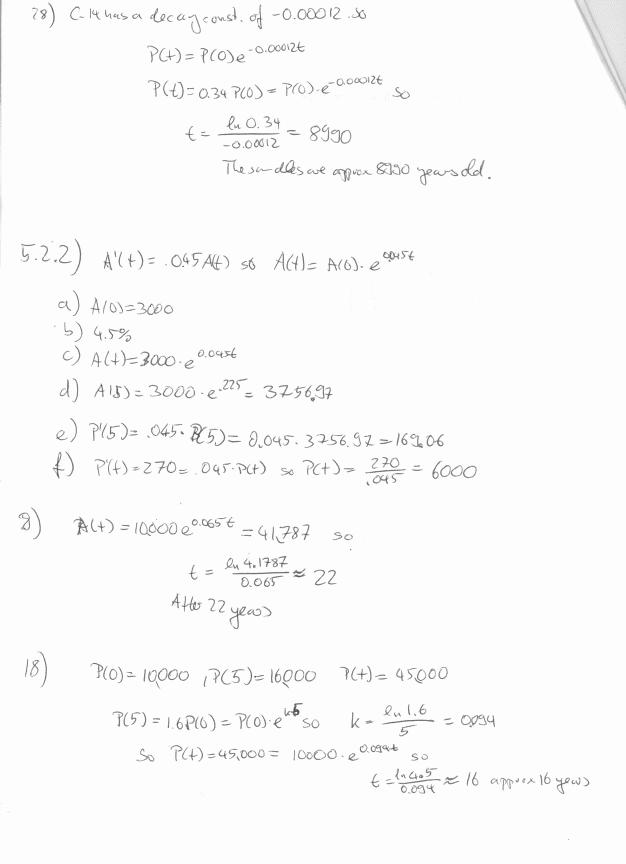 28) C-14 has a decay const. of -0.00012. so
P(t) = P(0)e^-0.00012t
P(t) = 0.34 P(0) = P(0)·e^-0.00012t so
t = ln 0.34 / -0.00012 = 8990
The sandles are approx 8990 years old.
5.2.2) A'(t) = .045A(t) so A(t) = A(0)·e^0.045t
a) A(0) = 3000
b) 4.5%
c) A(t) = 3000·e^0.045t
d) A(5) = 3000·e^.225 = 3756.97
e) P'(5) = .045·P(5) = 0.045·3756.97 = 169.06
f) P'(t) = 270 = .045·P(t) so P(t) = 270 / .045 = 6000
8) A(t) = 10,000e^0.065t = 41,787 so
t = ln 4.1787 / 0.065 ≈ 22
After 22 years
18) P(0) = 10,000 , P(5) = 16,000 P(t) = 45,000
P(5) = 1.6P(0) = P(0)·e^k5 so k = ln 1.6 / 5 = 0.094
So P(t) = 45,000 = 10000·e^0.094t so
t = ln 4.5 / 0.094 ≈ 16 approx 16 years